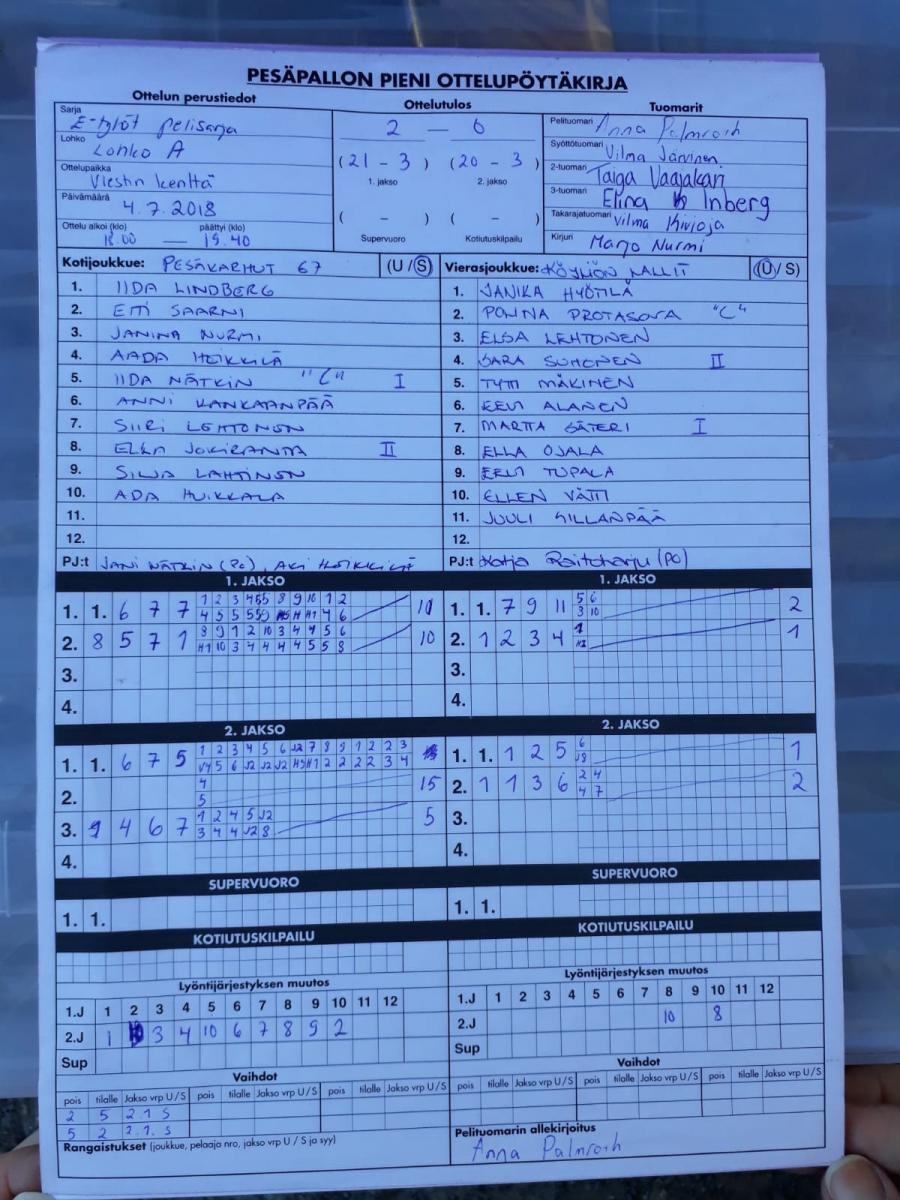 PESÄPALLON PIENI OTTELUPÖYTÄKIRJA
Ottelun perustiedot
Sarja
E-tytöt pelisarja
Lohko
Lohko A
Ottelupaikka
Viestin kenttä
Päivämäärä
4.7.2018
Ottelu alkoi (klo) päättyi (klo)
18.00 — 19.40
Ottelutulos
2 — 0
(21 - 3) (20 - 3)
1. jakso 2. jakso
( - ) ( - )
Supervuoro Kotiutuskilpailu
Tuomarit
Pelituomari Anna Palmroth
Syöttötuomari Vilma Järvinen
2-tuomari Taiga Vaajakari
3-tuomari Elina Inberg
Takarajatuomari Vilma Kivioja
Kirjuri Marjo Nurmi
Kotijoukkue: PESÄKARHUT 67 (U / S)
1. IIDA LINDBERG
2. EITI SAARNI
3. JANINA NURMI
4. AADA HEIKKILÄ
5. IIDA NÄTKIN "C" I
6. ANNI KANKAANPÄÄ
7. SIIRI LEHTONEN
8. ELLA JOKIRANTA II
9. SILJA LAHTINEN
10. ADA HUIKKALA
11.
12.
PJ:t JANI NÄTKIN (PC), AKI HEIKKILÄ
Vierasjoukkue: KÖYLIÖN NALLIT (U / S)
1. JANIKA HYÖTILÄ
2. POLINA PROTASOVA "C"
3. ELSA LEHTONEN
4. SARA SUHONEN II
5. TYTTI MÄKINEN
6. EEVI ALANEN
7. MARTTA SÄTERI I
8. ELLA OJALA
9. EEVI TUPALA
10. ELLEN VÄTTI
11. JUULI SILLANPÄÄ
12.
PJ:t Katja Raitoharju (PC)
1. JAKSO
1. 1. 6 7 7
10
2. 8 5 7 1
8 9 1 2 10 3 4 4 5 6
H1 10 3 4 4 4 4 5 5 8
10
3.
4.
1. JAKSO
1. 1. 7 9 11
5 6
3 10
2
2. 1 2 3 4
1
3.
4.
2. JAKSO
1. 1. 6 7 5
1 2 3 4 5 6 J2 7 8 9 1 2 2 3
V4 5 6 J2 J2 J2 H5 H1 2 2 2 2 3 4
2.
4
5
15
3. 9 4 6 7
1 2 4 5 J2
3 4 4 J2 8
5
4.
2. JAKSO
1. 1. 1 2 5
6
J9
1
2. 1 1 3 6
2 4
4 7
2
3.
4.
SUPERVUORO
1. 1.
SUPERVUORO
1. 1.
KOTIUTUSKILPAILU
KOTIUTUSKILPAILU
Lyöntijärjestyksen muutos
1.J 1 2 3 4 5 6 7 8 9 10 11 12
2.J 1 3 4 10 6 7 8 9 2
Sup
Lyöntijärjestyksen muutos
1.J 1 2 3 4 5 6 7 8 9 10 11 12
2.J 10 8
Sup
Vaihdot
pois tilalle Jakso vrp U / S pois tilalle Jakso vrp U / S pois tilalle Jakso vrp U / S
2 5 2.1 S
5 2 2.1. S
Rangaistukset (joukkue, pelaaja nro, jakso vrp U / S ja syy)
Vaihdot
pois tilalle Jakso vrp U / S pois tilalle Jakso vrp U / S pois tilalle Jakso vrp U / S
Pelituomarin allekirjoitus
Anna Palmroth